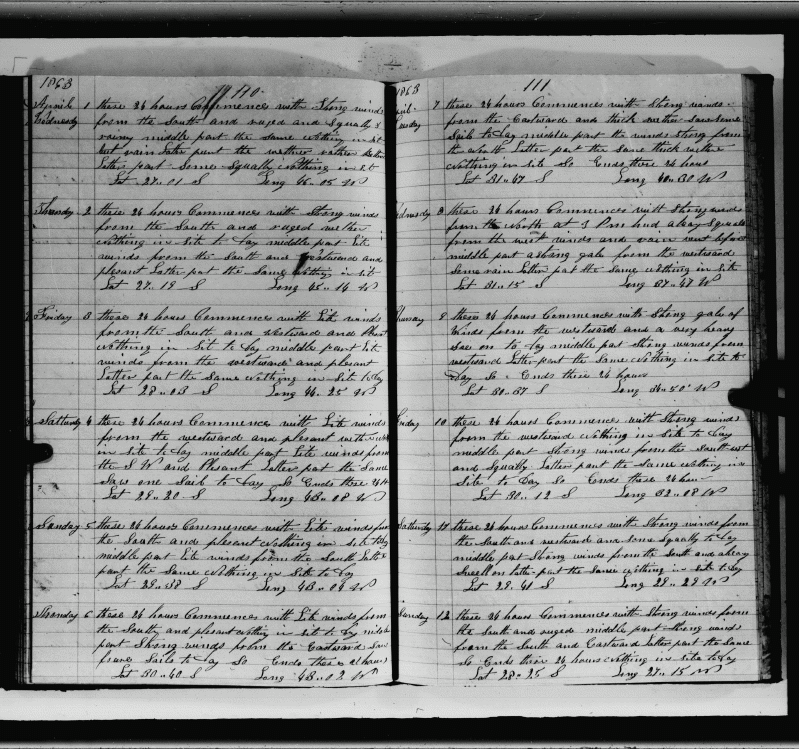 1863
110.
April 1 these 24 hours Commences with Stong winds
Wednesday from the South and ruged and Squally &
rainy middle part the same nothing in sit
but rain latter part the wether rather better
latter part Some Squally nothing in sit
Lat 27..01 S Long 46..05 W
Thursday 2 these 24 hours Commences with Stong winds
from the South and ruged wether
nothing in Sit to day middle part Lite
winds from the South and westward and
plesant Latter part the Same nothing in sit
Lat 27..19 S Long 45..14 W
Friday 3 these 24 hours Commences with Lite winds
from the South and westward and
nothing in Sit to day middle part Lite
winds from the westward and plesant
Latter part the Same nothing in Site to day
Lat 28..03 S Long 44..25 W
Satturday 4 these 24 hours Commences with Lite winds
from the westward and plesant with nothing
in Site to day middle part Lite winds from
the S W and Plesant Latter part the Same
Saw one Sail to day So Ends these 24 H
Lat 28..20 S Long 43..08 W
Sunday 5 these 24 hours Commences with Lite winds from
the South and plesant nothing in site to day
middle part Lite winds from the South Latter
part the Same nothing in Site to day
Lat 29..38 S Long 43..04 W
Monday 6 these 24 hours Commences with Lite winds from
the Southy and plesant nothing in Sit to day middle
part Strong winds from the Eastward Saw
Sails to day So Ends these 24 hours
Lat 30..40 S Long 43..02 W
1863
111
April 7 these 24 hours Commences with Strong winds
Tuesday from the Eastward and thick wether Saw some
Sail to day middle part the winds stong from
the North Latter part the Same thick wether
nothing in Site So Ends these 24 hours
Lat 31..47 S Long 40..30 W
Wednesday 8 these 24 hours Commences with Stong winds
from the North at 3 P m had a hevy Squall
from the west winds and rain
middle part a Stong gale from the westward
Some rain Latter part the Same nothing in Site
Lat 31..15 S Long 37..47 W
Thursday 9 these 24 hours Commences with Stong gale of
winds from the westward and a very heavy
sea on to day middle part stong winds from
westward Latter part the Same Nothing in Site to
day So Ends these 24 hours
Lat 30..37 S Long 34..50 W
Friday 10 these 24 hours Commences with Strong winds
from the westward nothing in Site to day
middle part Strong winds from the South west
and Squally Latter part the Same nothing in
Site to Day So Ends these 24 hour
Lat 30..12 S Long 32..08 W
Satturday 11 these 24 hours Commences with Strong winds from
the South and westward and some Squally to day
middle part Stong winds from the South and a heavy
Swell on latter part the Same nothing in site to day
Lat 29..41 S Long 29..29 W
Sunday 12 these 24 hours Commences with Strong winds from
the South and ruged middle part Strong winds
from the South and Eastward latter part the Same
So Ends these 24 hours nothing in Site to day
Lat 28..25 S Long 27..15 W